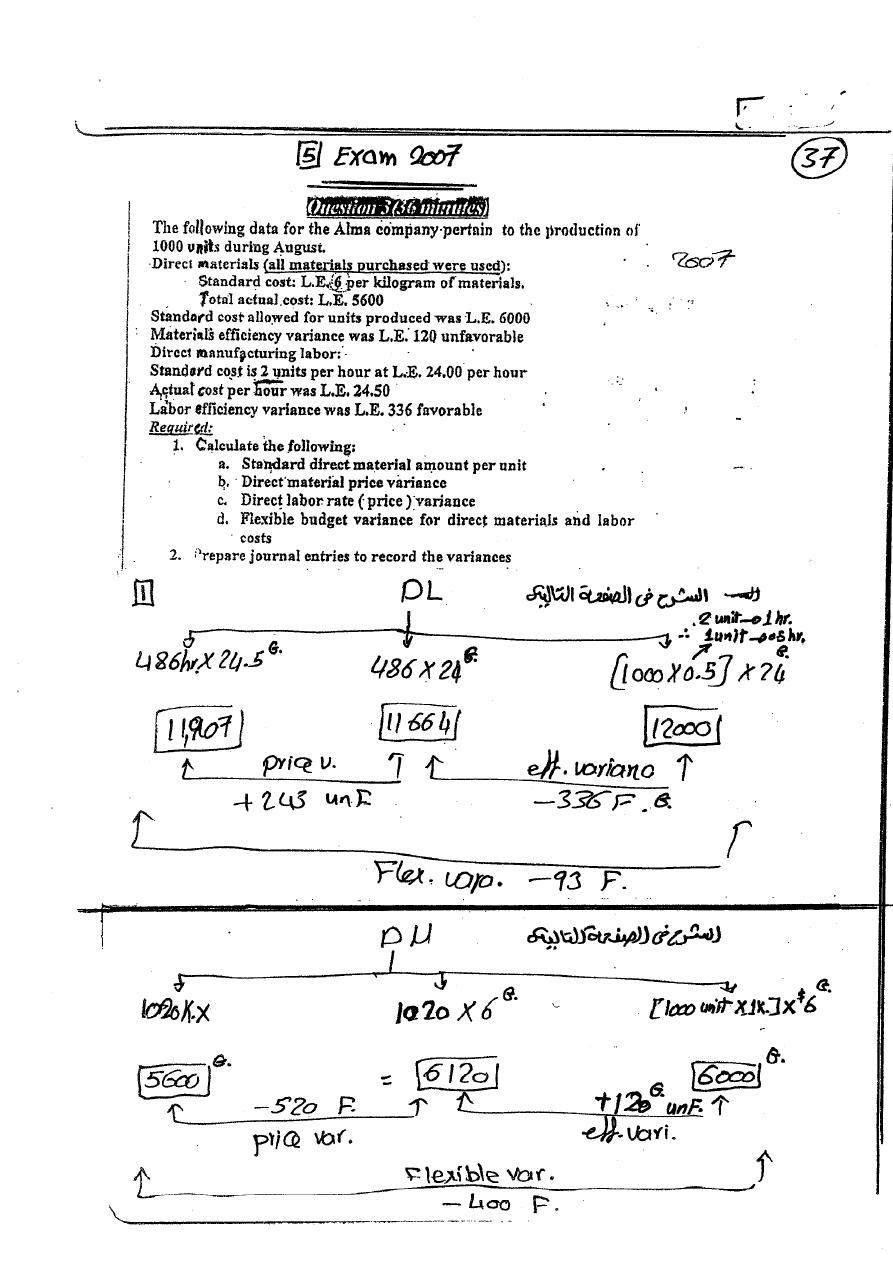 5 Exam 2007
37
Question 3 (36 minutes)
The following data for the Alma company pertain to the production of
1000 units during August.
2007
Direct materials (all materials purchased were used):
Standard cost: L.E. 6 per kilogram of materials.
Total actual cost: L.E. 5600
Standard cost allowed for units produced was L.E. 6000
Materials efficiency variance was L.E. 120 unfavorable
Direct manufacturing labor:
Standard cost is 2 units per hour at L.E. 24.00 per hour
Actual cost per hour was L.E. 24.50
Labor efficiency variance was L.E. 336 favorable
Required:
1. Calculate the following:
a. Standard direct material amount per unit
b. Direct material price variance
c. Direct labor rate ( price ) variance
d. Flexible budget variance for direct materials and labor
costs
2. Prepare journal entries to record the variances
1 DL الشرح فى الصفحة التالية
2 unit → 1 hr.
∴ 1 unit → 0.5 hr.
486 hr. X 24.5 G. 486 X 24 G. [1000 X 0.5] X 24 G.
11,907 11664 12000
price v. eff. varianc
+ 243 unF. - 336 F. G.
Flex. var. - 93 F.
DM الشرح فى الصفحة التالية
1020 K. X 1020 X 6 G. [1000 unit X 1K.] X $6 G.
5600 G. = 6120 6000 G.
- 520 F. + 120 G. unF.
price var. eff. vari.
Flexible var.
- 400 F.